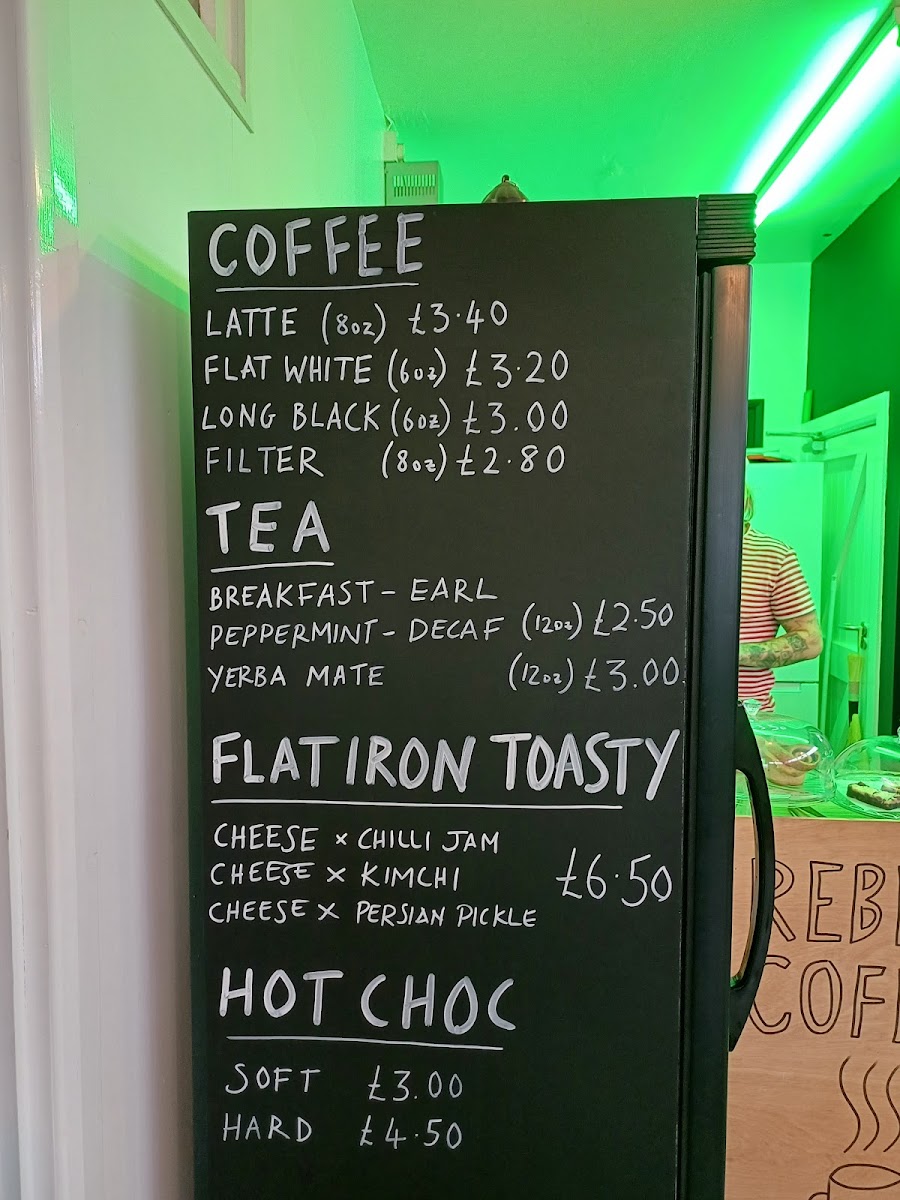 COFFEE
LATTE (8oz) £3.40
FLAT WHITE (6oz) £3.20
LONG BLACK (6oz) £3.00
FILTER (8oz) £2.80
TEA
BREAKFAST - EARL
PEPPERMINT - DECAF (12oz) £2.50
YERBA MATE (12oz) £3.00
FLAT IRON TOASTY
CHEESE x CHILLI JAM
CHEESE x KIMCHI £6.50
CHEESE x PERSIAN PICKLE
HOT CHOC
SOFT £3.00
HARD £4.50
REB
COF